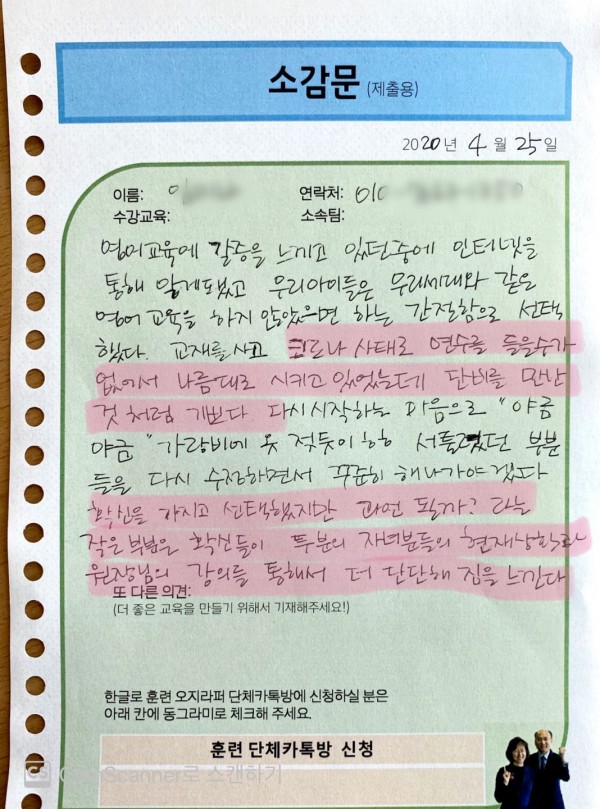 소감문 (제출용)
2020년 4월 25일
이름: 연락처: 010
수강교육: 소속팀:
영어교육에 갈등을 느끼고 있던중에 인터넷을
통해 알게됐고 우리아이들은 우리세대와 같은
영어 교육을 하지 않았으면 하는 간절함으로 선택
했다. 교재를 사고 코로나 사태로 연수를 들을수가
없어서 나름대로 시키고 있었는데 단비를 만난
것 처럼 기쁘다. 다시 시작하는 마음으로 "야금
야금" 가랑비에 옷 젖듯이 서툴렀던 부분
들을 다시 수정하면서 꾸준히 해나가야겠다
확신을 가지고 선택했지만 과연 될까? 라는
작은 부분은 확신들이 두분의 자녀분들의 현재상황과
원장님의 강의를 통해서 더 단단해 짐을 느낀다
또 다른 의견:
(더 좋은 교육을 만들기 위해서 기재해주세요!)
한글로 훈련 오지라퍼 단체카톡방에 신청하실 분은
아래 칸에 동그라미로 체크해 주세요.
훈련 단체카톡방 신청
CS CamScanner로 스캔하기